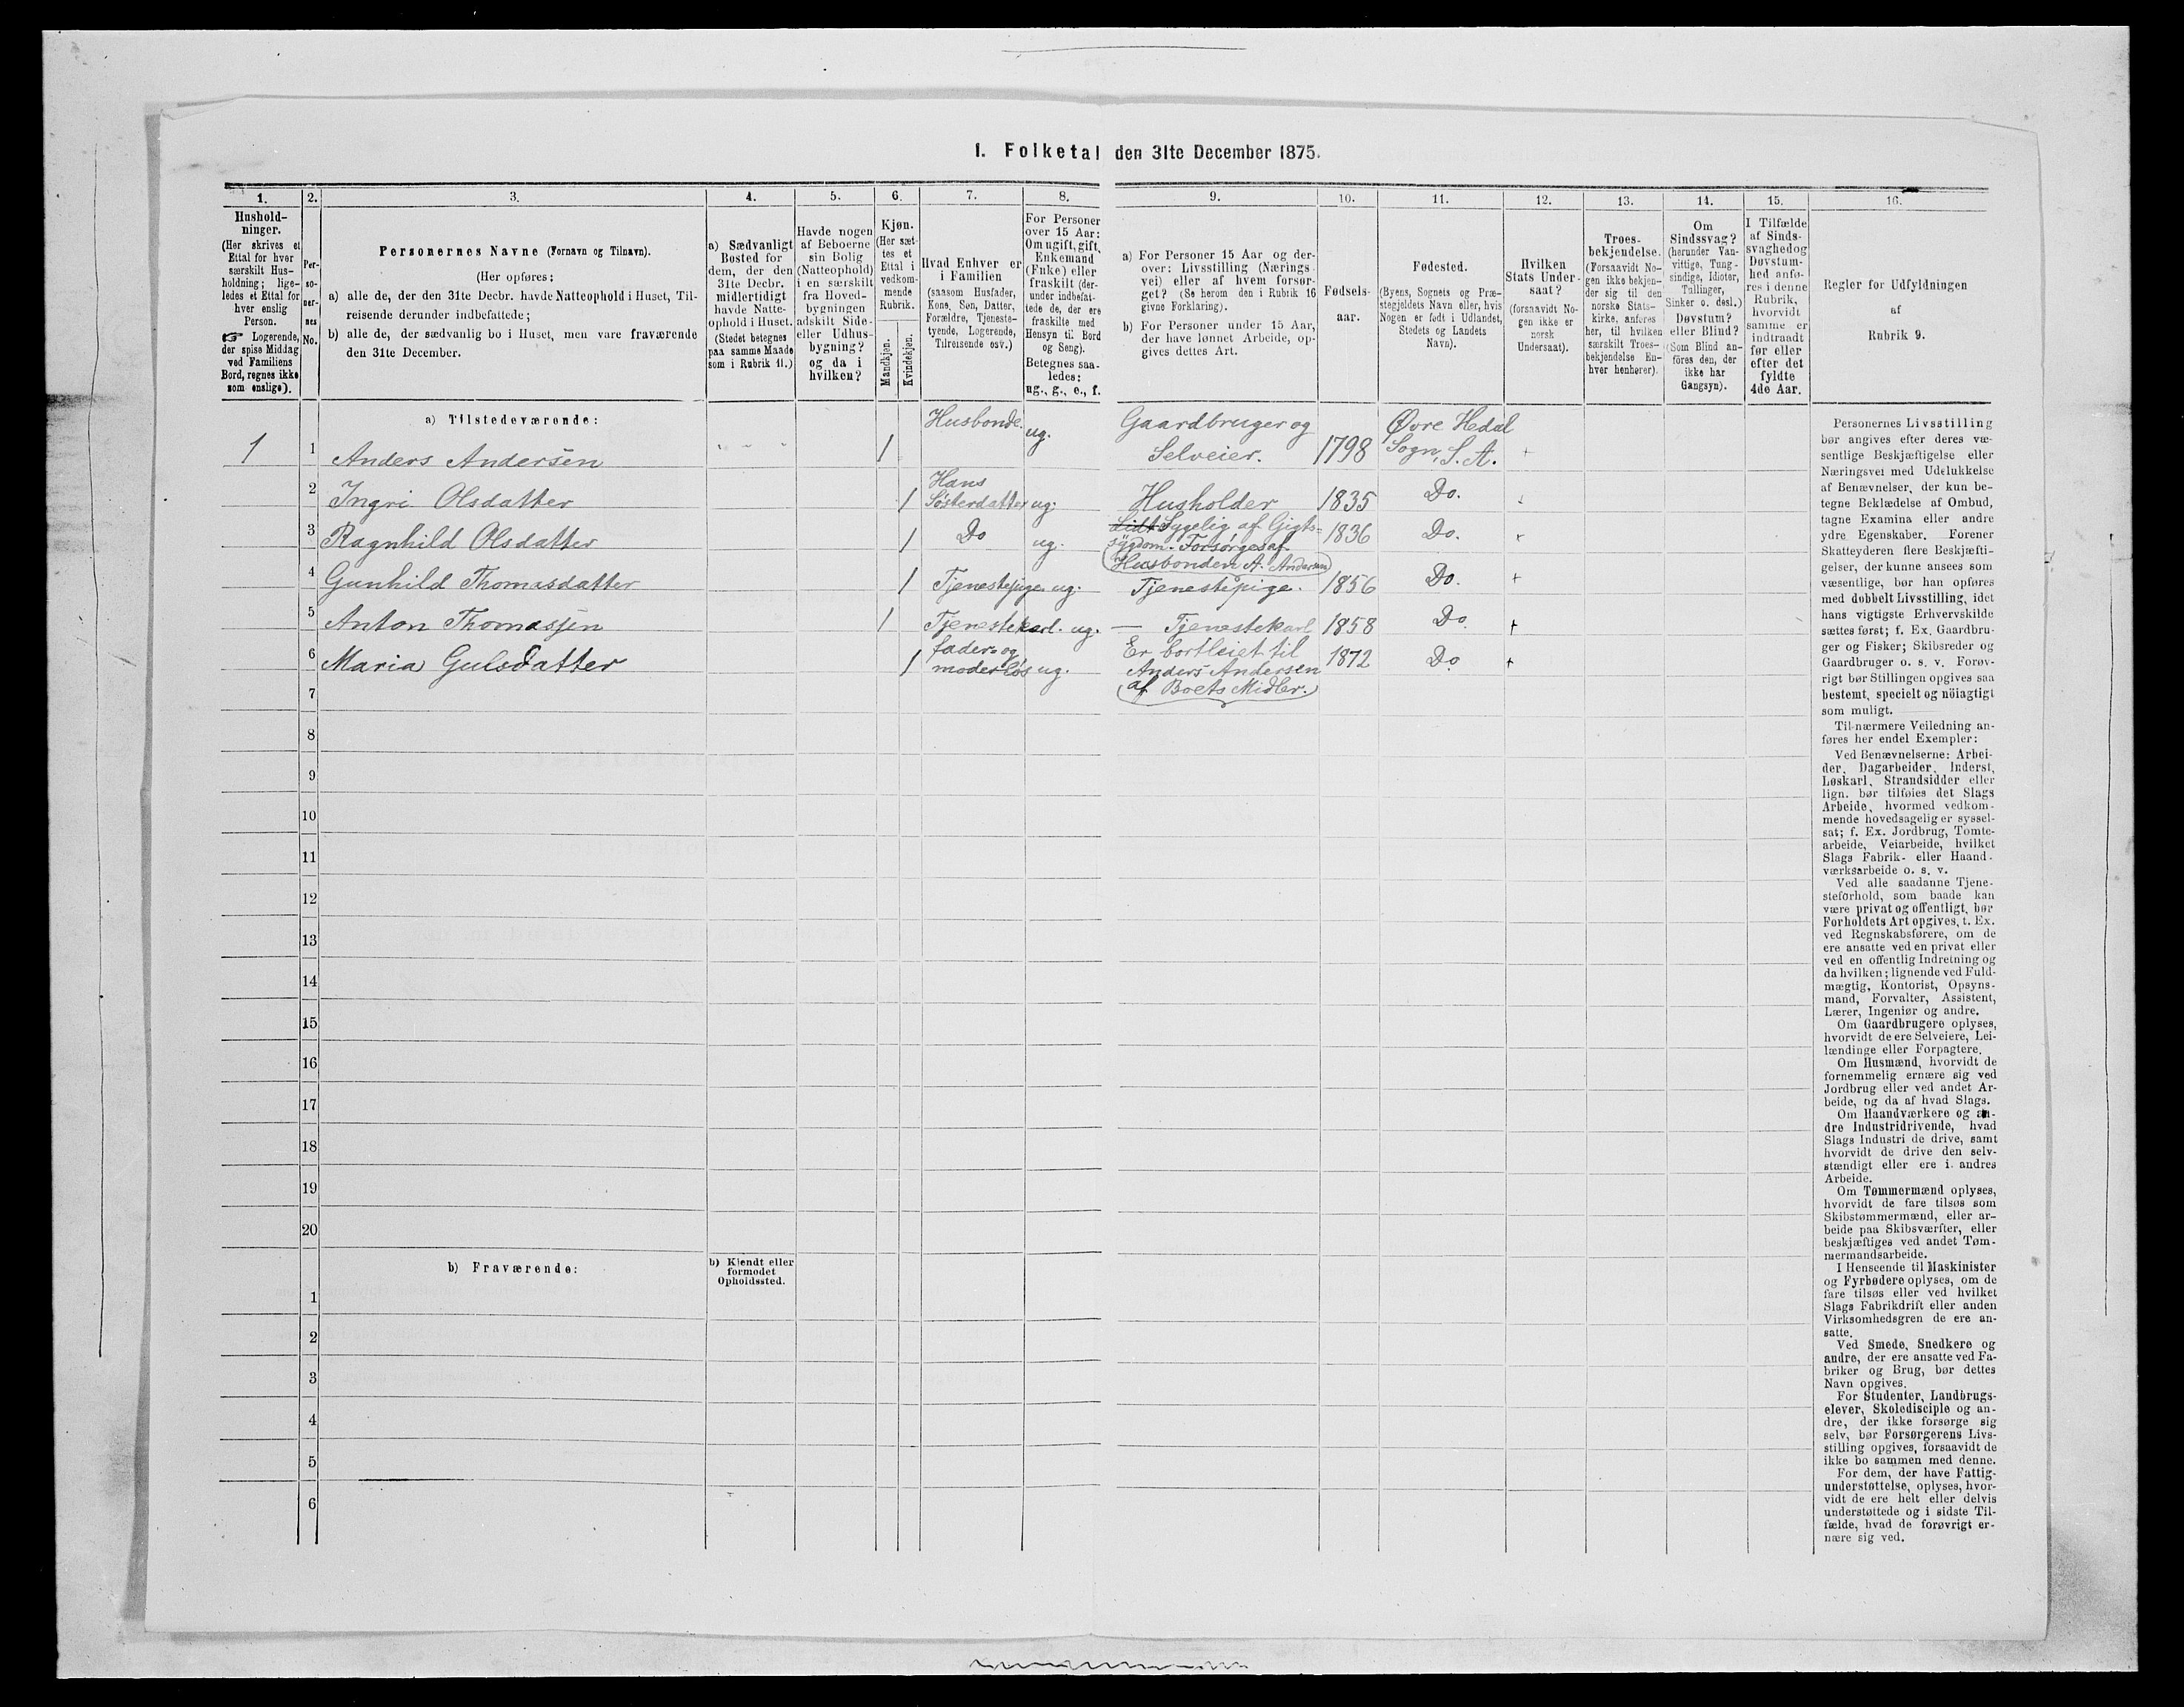 I. Folketal den 31te December 1875.
1.
2.
3.
4.
5.
6.
7.
8.
9.
10.
11.
12.
13.
14.
15.
16.
Hushold-
ninger.
(Her skrives et
Ettal for hver
særskilt Hus-
holdning; lige-
ledes et Ettal for
hver enslig
Person.
☞ Logerende,
der spise Middag
ved Familiens
Bord, regnes ikke
som enslige).
Per-
so-
ner-
nes
No.
Personernes Navne (Fornavn og Tilnavn).
(Her opføres:
a) alle de, der den 31te Decbr. havde Natteophold i Huset, Til-
reisende derunder indbefattede;
b) alle de, der sædvanlig bo i Huset, men vare fraværende
den 31te December.
a) Sædvanligt
Bosted for
dem, der den
31te Decbr.
midlertidigt
havde Natte-
ophold i Huset.
(Stedet betegnes
paa samme Maade
som i Rubrik 11.)
Havde nogen
af Beboerne
sin Bolig
(Natteophold)
i en særskilt
fra Hoved-
bygningen
adskilt Side-
eller Udhus-
bygning?
og da i
hvilken?
Kjøn.
(Her sæt-
tes et
Ettal i
vedkom-
mende
Rubrik.
Mandkjøn.
Kvindekjøn.
Hvad Enhver er
i Familien
(saasom Husfader,
Kone, Søn, Datter,
Forældre, Tjeneste-
tyende, Logerende,
Tilreisende osv.)
For Personer
over 15 Aar:
Om ugift, gift,
Enkemand
(Enke) eller
fraskilt (der-
under indbefat-
tede de, der ere
fraskilte med
Hensyn til Bord
og Seng).
Betegnes saa-
ledes:
ug., g., e., f.
a) For Personer 15 Aar og der-
over: Livsstilling (Nærings-
vei) eller af hvem forsør-
get? (Se herom den i Rubrik 16
givne Forklaring).
b) For Personer under 15 Aar,
der have lønnet Arbeide, op-
gives dettes Art.
Fødsels-
aar.
Fødested.
(Byens, Sognets og Præ-
stegjeldets Navn eller, hvis
Nogen er født i Udlandet,
Stedets og Landets
Navn).
Hvilken
Stats Under-
saat?
(forsaavidt No-
gen ikke er
norsk
Undersaat).
Troes-
bekjendelse.
(Forsaavidt No-
gen ikke bekjen-
der sig til den
norske Stats-
kirke, anføres
her, til hvilken
særskilt Troes-
bekjendelse En-
hver henhører).
Om
Sindssvag?
(herunder Van-
vittige, Tung-
sindige, Idioter,
Tullinger,
Sinker o. desl.)
Døvstum?
eller Blind?
(Som Blind an-
föres den, der
ikke har
Gangsyn).
I Tilfælde
af Sinds-
svaghed og
Døvstum-
hed anfø-
res i denne
Rubrik,
hvorvidt
samme er
indtraadt
før eller
efter det
fyldte
4de Aar.
Regler før Udfyldningen
af
Rubrik 9.
a) Tilstedeværende:
1 1 Anders Andersen 1 Husbonde. ug. Gaardbruger og Selveier. 1798 Øvre Hedal Sogn, S. A. +
2 Ingri Olsdatter 1 Hans Søsterdatter ug: Husholder 1835 Do.
3 Ragnhild Olsdatter 1 Do ug. Lidt Sygelig af Gigts-
sygdom. Forsørges af
Husbonden A. Andersen 1836 Do.
4 Gunhild Thomasdatter 1 Tjenestepige ug. Tjenestepige. 1856 Do. +
5 Anton Thomassen 1 Tjenestekarl. ug. — Tjenestekarl 1858 Do. +
6 Maria Gulsdatter 1 fader og moderløs ug. Er bortleiet til
Anders Andersen
(af Boets Midler.) 1872 Do +
7
8
9
10
11
12
13
14
15
16
17
18
19
20
b) Fraværende:
b) Kjendt eller
formodet
Opholdssted.
1
2
3
4
5
6
Personernes Livsstilling
bør angives efter deres væ-
sentlige Beskjæftigelse eller
Næringsvei med Udelukkelse
af Benævnelser, der kun be-
tegne Beklædelse af Ombud,
tagne Examina eller andre
ydre Egenskaber. Forener
Skatteyderen flere Beskjæfti-
gelser, der kunne ansees som
væsentlige, bør han opføres
med dobbelt Livsstilling, idet
hans vigtigste Erhvervskilde
sættes først; f. Ex. Gaardbru-
ger og Fisker; Skibsreder og
Gaardbruger o. s. v. Forøv-
rigt bør Stillingen opgives saa
bestemt, specielt og nöiagtigt
som muligt.
Til nærmere Veiledning an-
føres her endel Exempler:
Ved Benævnelserne: Arbei-
der, Dagarbeider, Inderst,
Løskarl, Strandsidder eller
lign. bør tilføies det Slags
Arbeide, hvormed vedkom-
mende hovedsagelig er syssel-
sat; f. Ex. Jordbrug, Tomte-
arbeide, Veiarbeide, hvilket
Slags Fabrik- eller Haand-
værksarbeide o. s. v.
Ved alle saadanne Tjene-
steforhold, som baade kan
være privat og offentligt, bør
Forholdets Art opgives, t. Ex.
ved Regnskabsførere, om de
ere ansatte ved en privat eller
ved en offentlig Indretning og
da hvilken; lignende ved Fuld-
mægtig, Kontorist, Opsyns-
mand, Forvalter, Assistent,
Lærer, Ingeniør og andre.
Om Gaardbrugere oplyses,
hvorvidt de ere Selveiere, Lei-
lændinge eller Forpagtere.
Om Husmænd, hvorvidt de
fornemmelig ernære sig ved
Jordbrug eller ved andet Ar-
beide, og da af hvad Slags.
Om Haandværkere og an-
dre Industridrivende, hvad
Slags Industri de drive, samt
hvorvidt de drive den selv-
stændigt eller ere i andres
Arbeide.
Om Tømmermænd oplyses,
hvorvidt de fare tilsøs som
Skibstømmermænd, eller ar-
beide paa Skibsværfter, eller
beskjæftiges ved andet Tøm-
mermandsarbeide.
I Henseende til Maskinister
og Fyrbødere oplyses, om de
fare tilsøs eller ved hvilket
Slags Fabrikdrift eller anden
Virksomhedsgren de ere an-
satte.
Ved Smede, Snedkere og
andre, der ere ansatte ved Fa-
briker og Brug, bør dettes
Navn opgives.
For Studenter, Landbrugs-
elever, Skoledisciple og an-
dre, der ikke forsørge sig
selv, bør Forsørgerens Livs-
stilling opgives, forsaavidt de
ikke bo sammen med denne.
For dem, der have Fattig-
understøttelse, oplyses, hvor-
vidt de ere helt eller delvis
understøttede og i sidste Til-
fælde, hvad de forøvrigt er-
nære sig ved.